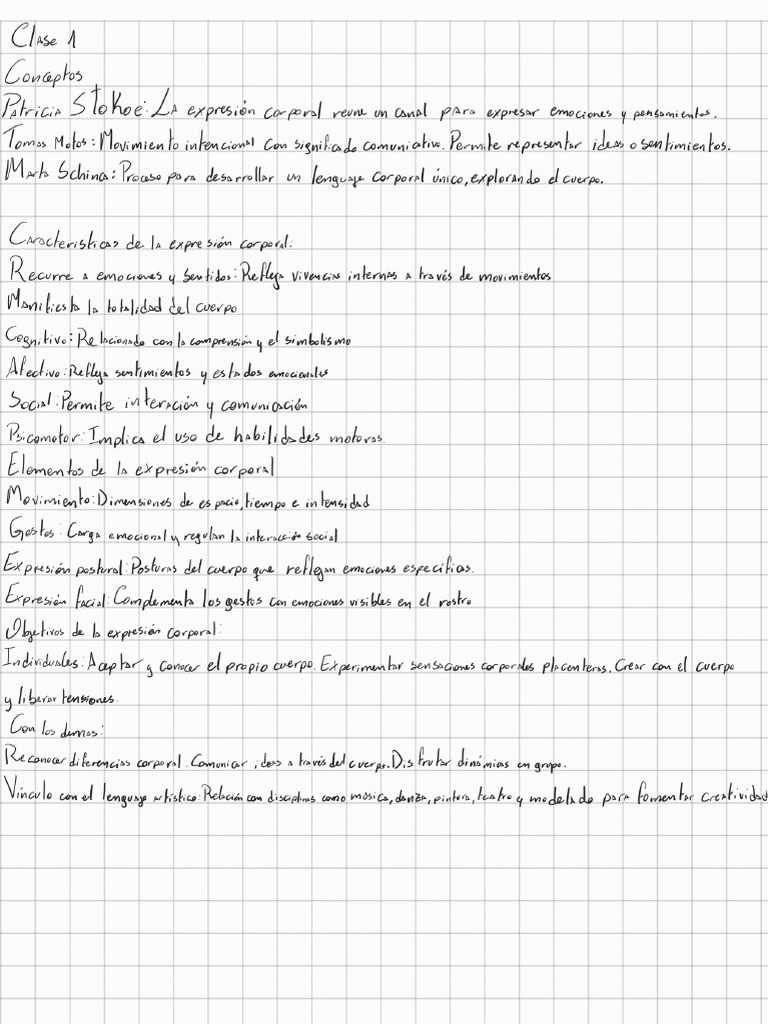 Clase 1
Conceptos
Patricia Stokoe: La expresión corporal reune un canal para expresar emociones y pensamientos.
Tomas Motos: Movimiento intencional con significado comuniativo. Permite representar ideas o sentimientos.
Marta Schina: Proceso para desarrollar un lenguaje corporal único, explorando el cuerpo.
Caracteristicas de la expresión corporal:
Recurre a emociones y sentidos: Refleja vivencias internas a través de movimientos
Manifiesta la totalidad del cuerpo
Cognitivo: Relacionado con la comprensión y el simbolismo
Afectivo: Refleja sentimientos y estados emocionales
Social: Permite interación y comunicación
Psicomotor: Implica el uso de habilidades motoras.
Elementos de la expresión corporal
Movimiento: Dimensiones de espacio, tiempo e intensidad
Gestos: Carga emocional y regulan la interacción social
Expresión postural: Posturas del cuerpo que reflegan emociones específias.
Expresión facial: Complementa los gestos con emociones visibles en el rostro
Objetivos de la expresión corporal:
Individuales: Aceptar y conocer el propio cuerpo. Experimentar sensaciones corporales placenteras. Crear con el cuerpo
y liberar tensiones.
Con los demas:
Reconocer diferencias corporal. Comunicar ideas a través del cuerpo. Disfrutar dinámicas en grupo.
Vínculo con el lenguaje artístico: Relación con disciplinas como música, danza, pintura, teatro y modelado para fomentar creatividad